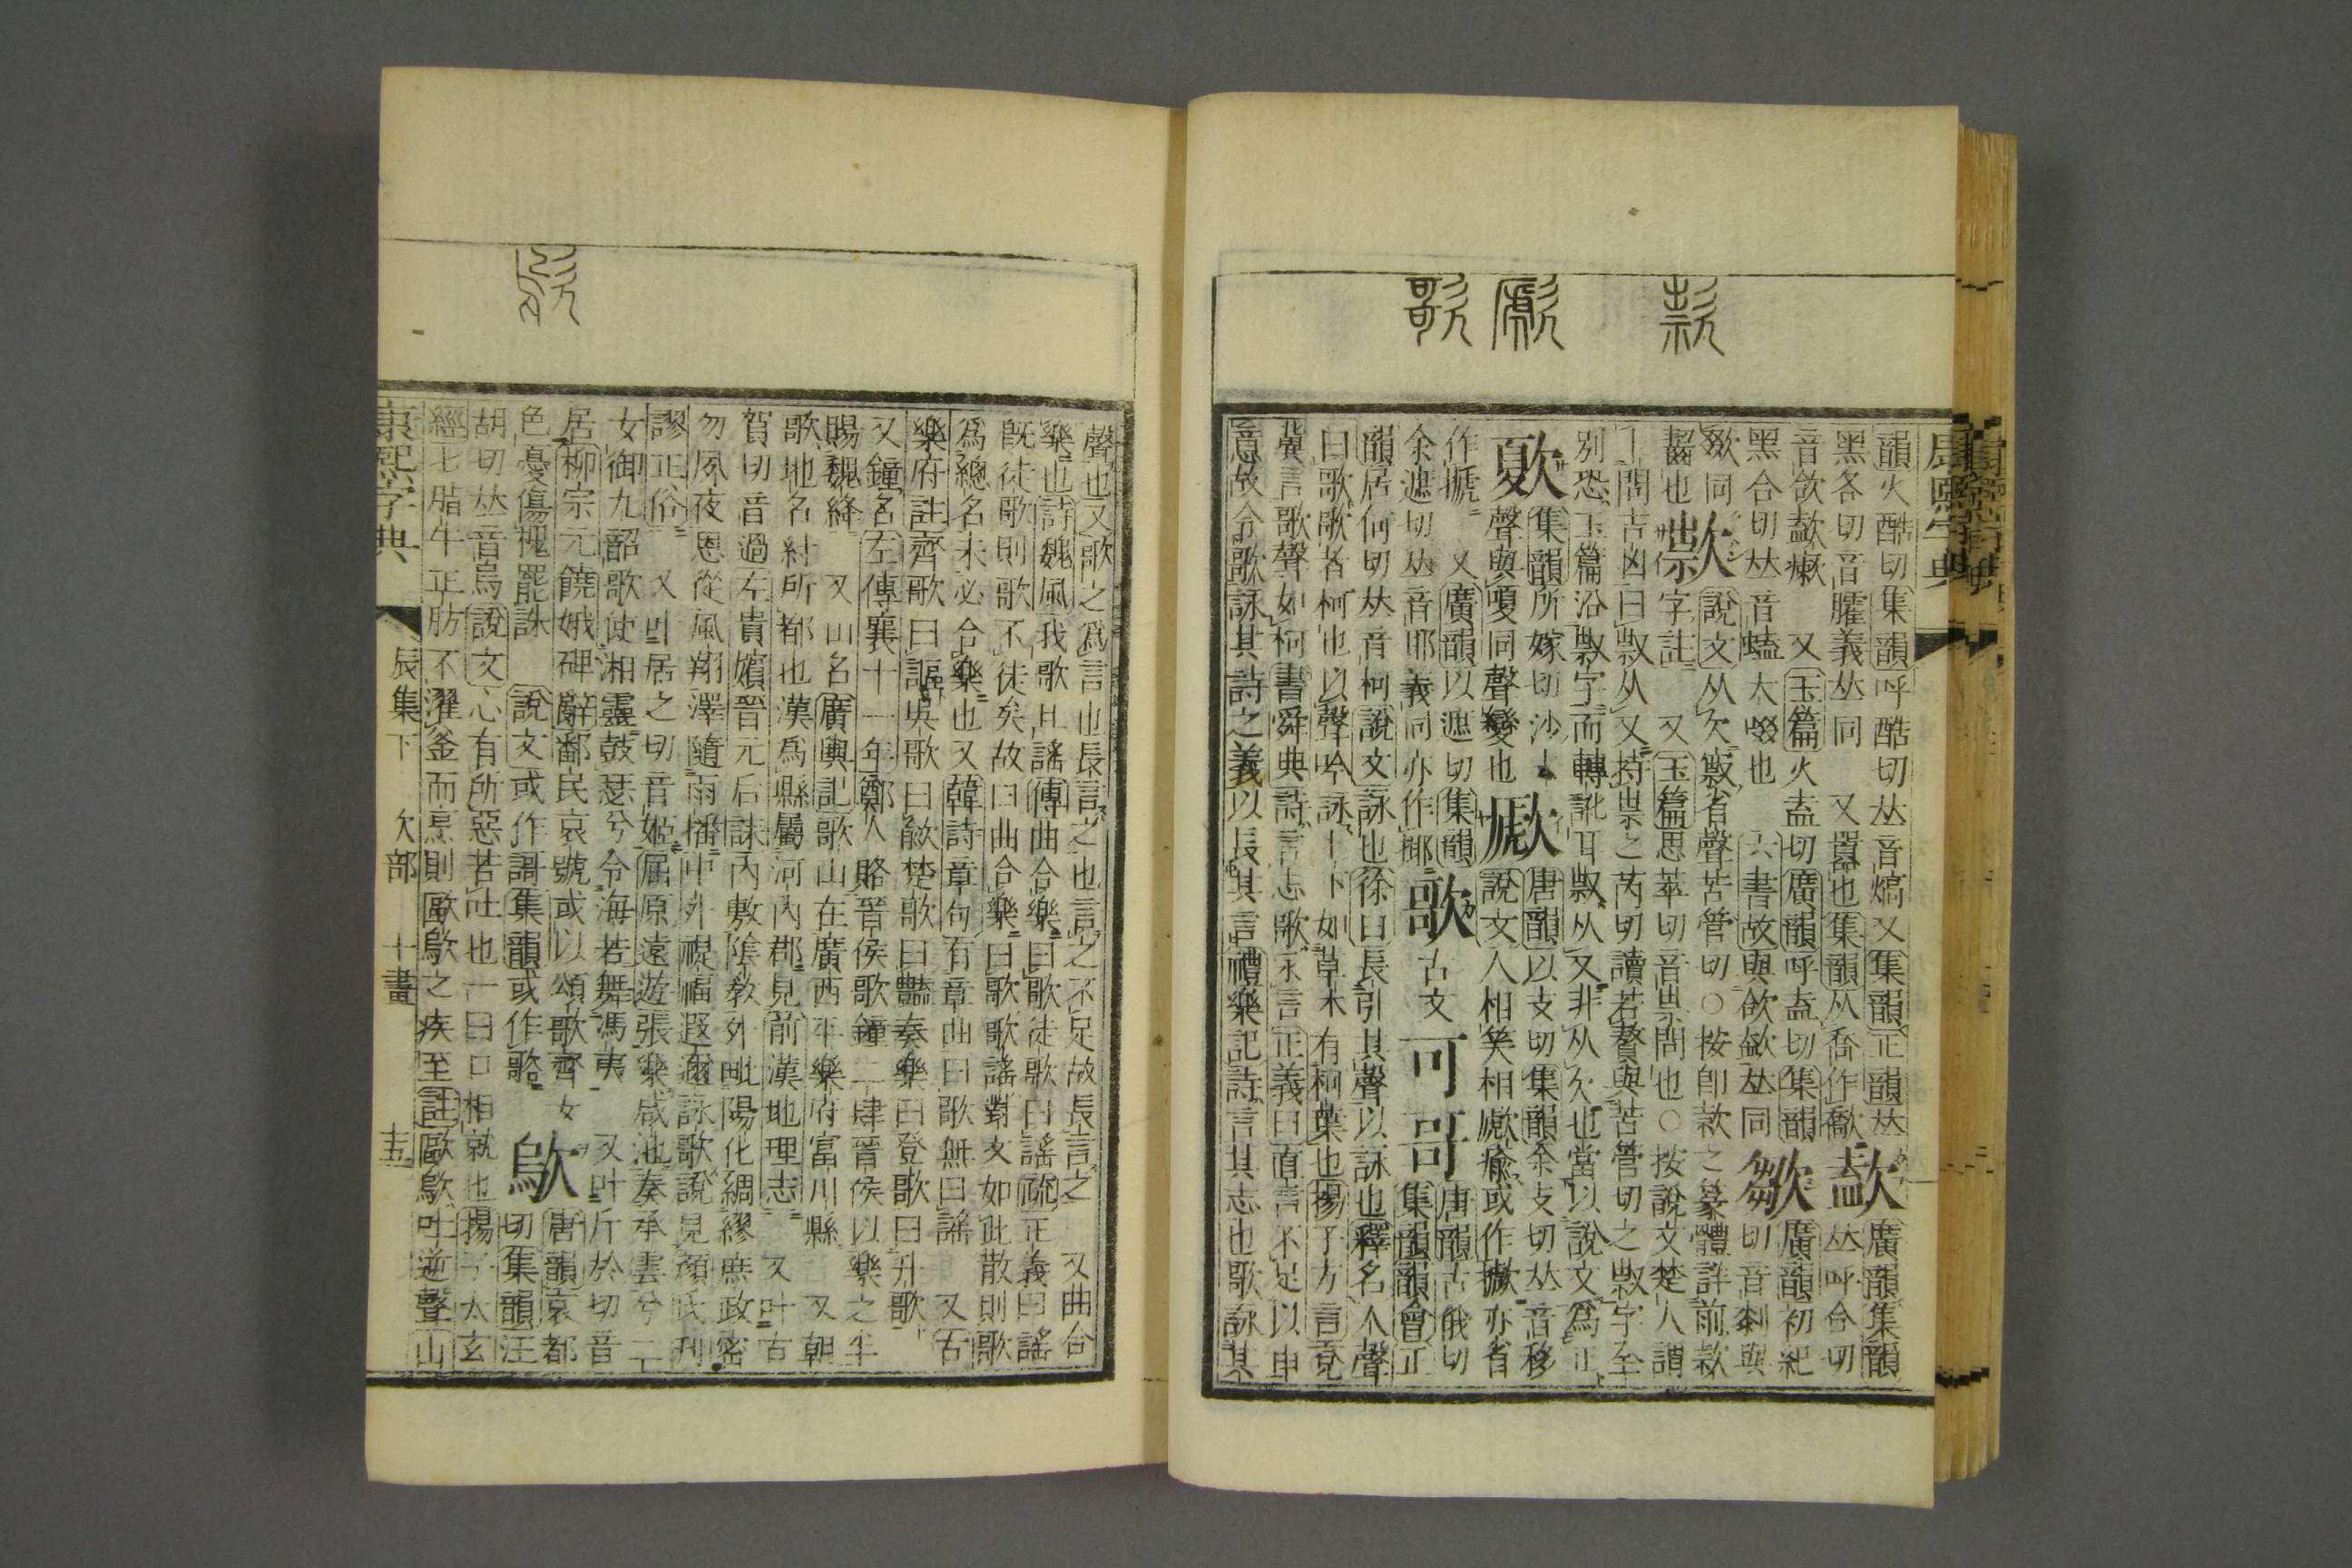 韻火酷切集韻呼酷切𠀤音熇又集韻正韻𠀤
黑各切音臛義𠀤同 又嚣也集韻从喬作歊
歖
廣韻集韻
𠀤呼合切
音欱歖㾭 又玉篇火盍切廣韻呼盍切集韻
黑合切𠀤音蟕大啜也 六書故與欱歛𠀤同
㰬
廣韻初紀
切音剶與
欼同
𣤆
說文从欠𣀳省聲苦管切○按卽款之篆體詳前款
字註 又玉篇思萃切音祟問也○按說文楚人謂
卜問吉凶曰𣀳从又持祟之芮切讀若贅與苦管切之𣤆字至
別恐玉篇沿𣀳字而轉訛耳𣀳从又非从欠也當以說文爲正
𣣺
集韻所嫁切沙去
聲與嗄同聲變也
歋
唐韻以支切集韻余支切𠀤音移
說文人相笑相歋瘉或作擨亦省
作搋 又廣韻以遮切集韻
余遮切𠀤音耶義同亦作擨
歌
古文
可
哥
唐韻古俄切
集韻韻會正
韻居何切𠀤音柯說文詠也徐曰長引其聲以詠也釋名人聲
曰歌歌者柯也以聲吟詠上下如草木有柯葉也揚子方言兗
冀言歌聲如柯書舜典詩言志歌永言正義曰直言不足以申
意故令歌詠其詩之義以長其言禮樂記詩言其志也歌詠其
聲也又歌之爲言也長言之也言之不足故長言之 又曲合
樂也詩魏風我歌且謠傳曲合樂曰歌徒歌曰謠疏正義曰謠
旣徒歌則歌不徒矣故曰曲合樂曰歌歌謠對文如此散則歌
爲總名未必合樂也又韓詩章句有章曲曰歌無曰謠 又古
樂府註齊歌曰謳吳歌曰歈楚歌曰豔奏樂曰登歌曰升歌
又鐘名左傳襄十一年鄭人賂晉侯歌鐘二肆晉侯以樂之半
賜魏絳 又山名廣輿記歌山在廣西平樂府富川縣 又朝
歌地名紂所都也漢爲縣屬河內郡見前漢地理志 又叶古
賀切音過左貴嬪晉元后誄內敷陰敎外毗陽化綢繆庶政密
勿夙夜恩從風翔澤隨雨播中外禔福遐邇詠歌說見顏氏刊
謬正俗 又叶居之切音姬屈原遠遊張樂咸池奏承雲兮二
女御九韶歌使湘靈鼓瑟兮令海若舞馮夷 又叶斤於切音
居柳宗元饒娥𥓓辭鄱民哀號或以頌歌齊女
色憂傷槐罷誅 說文或作謌集韻或作𣤩
歍
唐韻哀都
切集韻汪
胡切𠀤音烏說文心有所惡若吐也一曰口相就也揚子太玄
經七脂牛正肪不濯釜而烹則歐歍之疾至註歐歍吐逆聲山
康熙字典 辰集下 欠部 十畫 
康熙字典